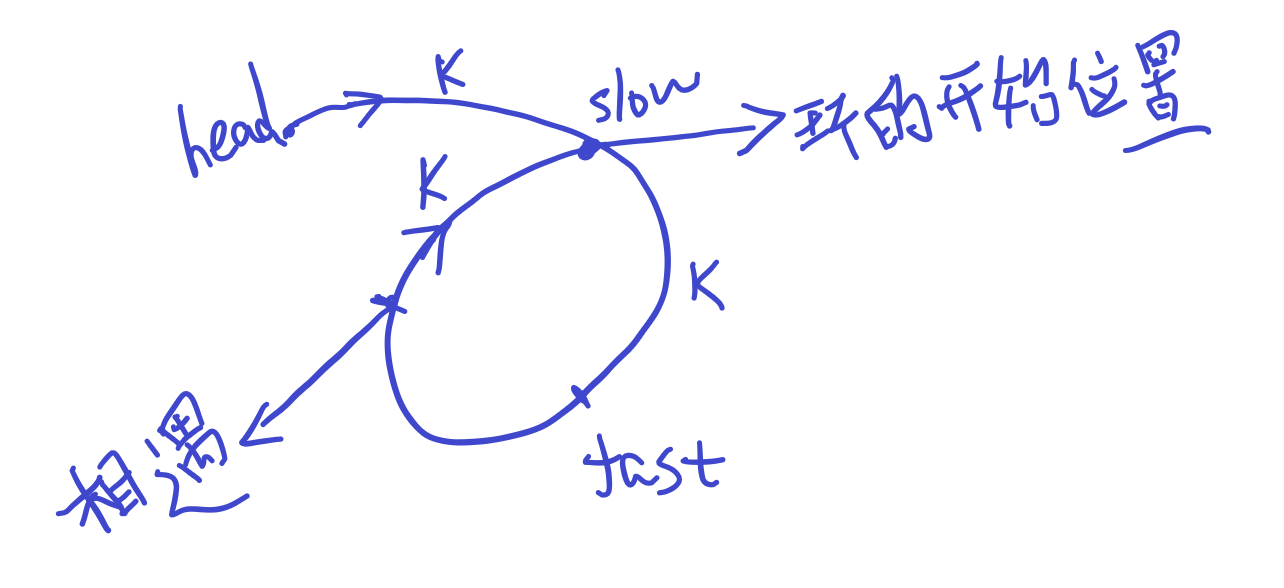 head
K
slow
环的开始位置
K
K
fast
相遇